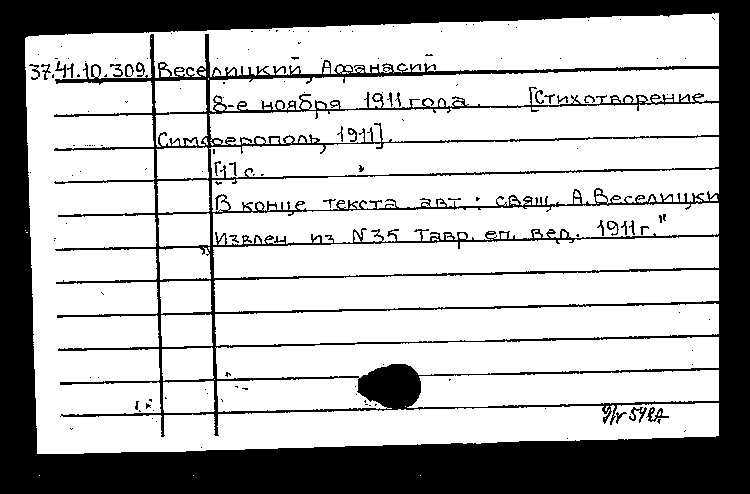 37.41.10.309. Веселицкий, Афанасий
8-е ноября 1911 года. [Стихотворение
Симферополь, 1911].
[1] с.
В конце текста авт.: свящ. А. Веселицки
"Извлеч. из N 35 Тавр. еп. вед. 1911 г."